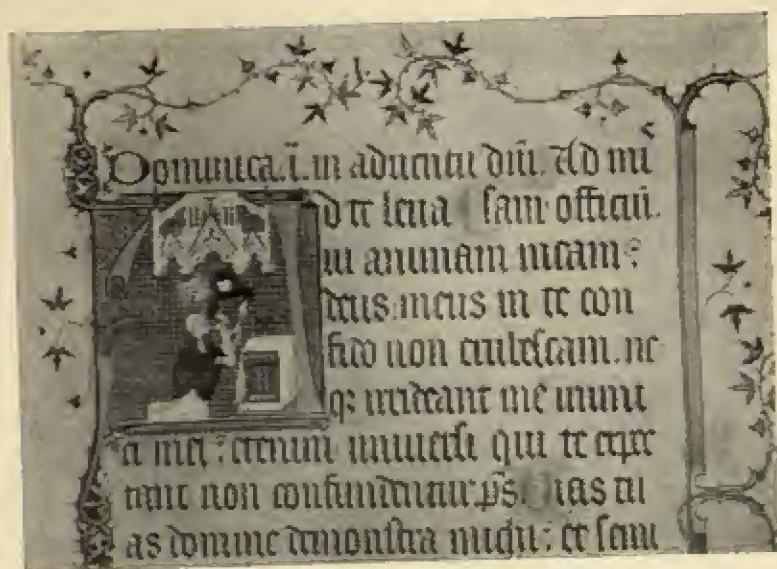 Dominica .i. in aduentu dñi. Ad mi
d te leua sam officiū.
ui animam meam:
deus meus in te con
fido non erubescam. ne
q; irrideant me inimi
ci mei: etenim uniuersi qui te expec
tant non confundentur. p̄s. Uias tu
as domine demonstra michi: et semi